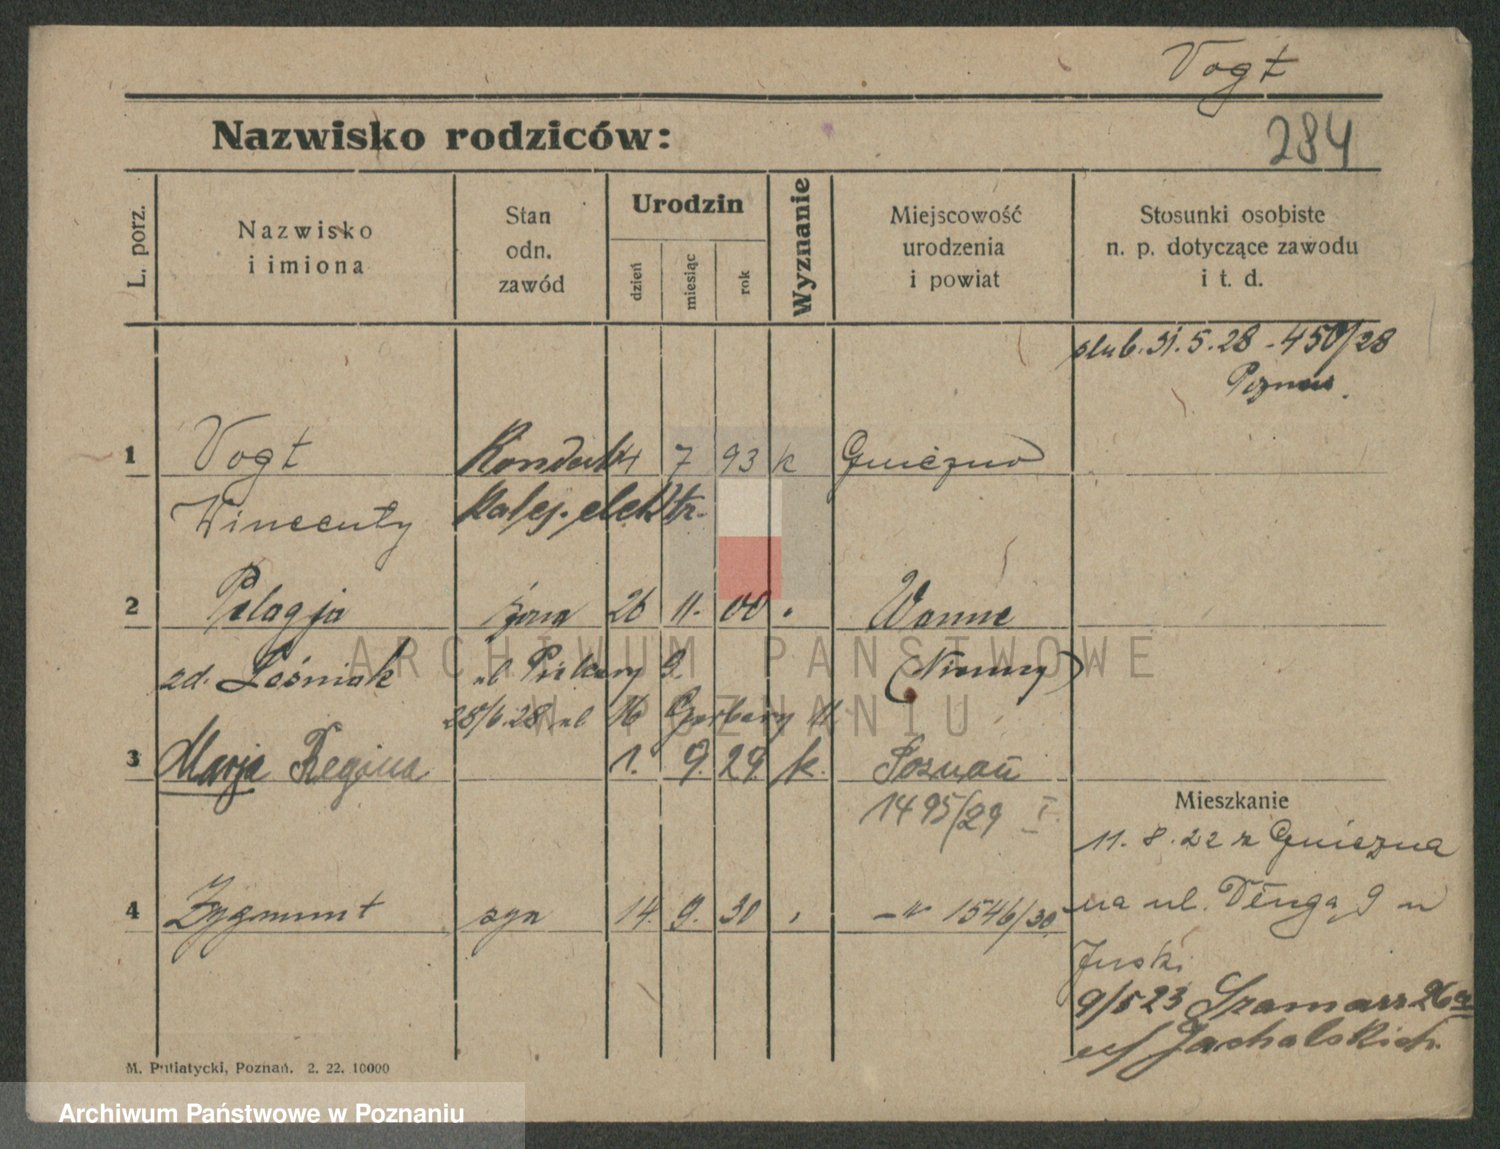 Vogt
Nazwisko rodziców:
284
L. porz.
Nazwisko
i imiona
Stan
odn.
zawód
Urodzin
dzień
miesiąc
rok
Wyznanie
Miejscowość
urodzenia
i powiat
Stosunki osobiste
n. p. dotyczące zawodu
i t. d.
ślub. 31.5.28 - 450/28
Poznań.
1 Vogt 4 7 93 k Gniezno
Wincenty kolej. elektr.
2 Pelagja żona 26 11. 00 Wanne
zd. Leśniak ul Piekary 9. (Niemcy)
28/6.28 ul 16 Garbary 11.
3 Marja Regina 1. 9. 29. k. Poznań
1495/29 I.
Mieszkanie
11. 8. 22 z Gniezna
4 Zygmunt syn 14. 9. 30 -"- 1546/30.
na ul. Długą 9 u
9/5 23 Szamarz. 26
M. Putiatycki, Poznań. 2. 22. 10000
ARCHIWUM PAŃSTWOWE
W POZNANIU
Archiwum Państwowe w Poznaniu